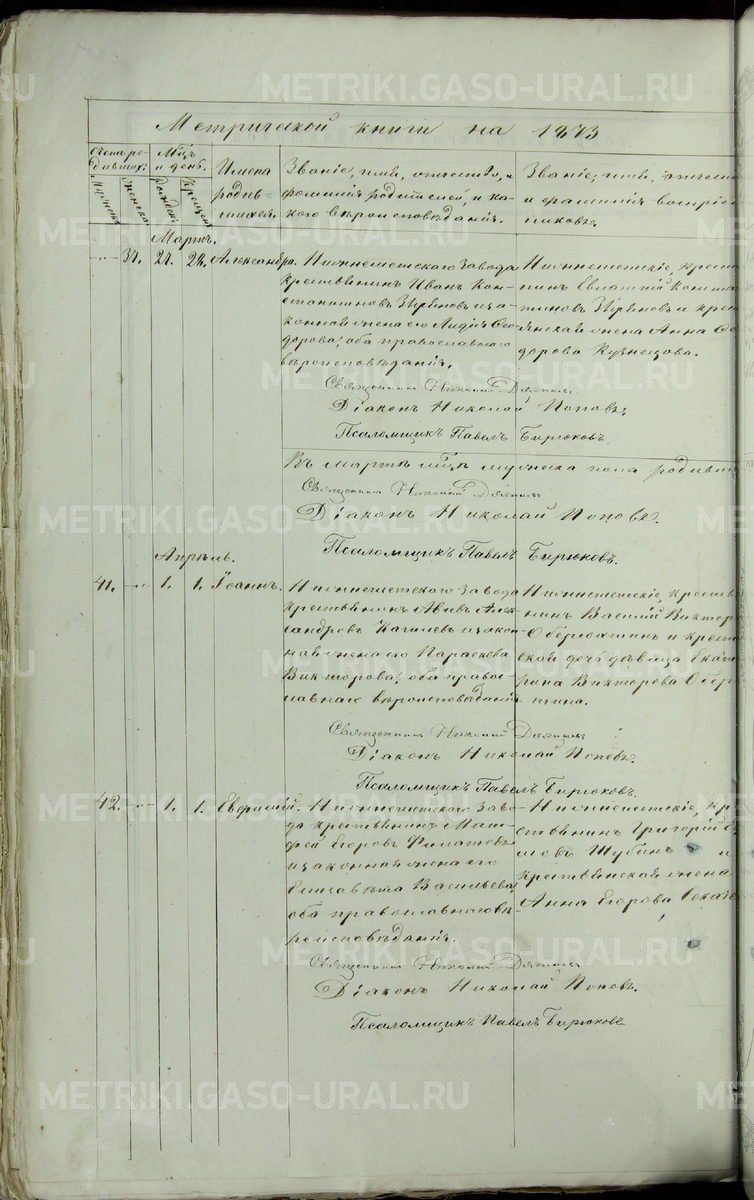 METRIKI.GASO-URAL.RU
Метрической книги на 1873
Счетъ родившихъ.
Мѣсяцъ и день.
Имена родившихся.
Званіе, имя, отчество, и фамилія родителей, и какого вѣроисповѣданія.
Званіе, имя, отчество и фамилія воспріемниковъ.
Мужеска
Женска
Рожден.
Крещен.
Мартъ.
34. 21. 22. Александра.
Нижнешетскаго завода
крестьянинъ Иванъ Кон-
стантиновъ Зыряновъ и за-
конная жена его Лидія Ѳео-
дорова; оба православнаго
вѣроисповѣданія.
Нижнешетскіе, кресть
нинъ Евлампій Конста
тиновъ Зыряновъ и крес
янская жена Анна Ѳе
дорова Кузнецова.
Священникъ Николай
Діаконъ Николай Поповъ.
Псаломщикъ Павелъ Бирюковъ.
Въ мартѣ мѣсяцѣ мужеска пола родивш
Священникъ Николай
Діаконъ Николай Поповъ.
Псаломщикъ Павелъ Бирюковъ.
Апрѣль.
41. 1. 1. Іоаннъ.
Нижнешетскаго завода
крестьянинъ Алек-
сандровъ и закон-
ная жена его Параскева
Викторова; оба право-
славнаго вѣроисповѣданія
Нижнешетскіе, крестья
нинъ Василій Виктор
и крестьян
ской дочь дѣвица Екате
рина Викторова
тина.
Священникъ Николай
Діаконъ Николай Поповъ.
Псаломщикъ Павелъ Бирюковъ.
42. 1. 1. Евфимій.
Нижнешетскаго заво-
да крестьянинъ Мат-
фей Егоровъ Филатовъ
и законная жена его
Елисавета Васильева;
оба православнаго вѣ-
роисповѣданія.
Нижнешетскіе, кре
стьянинъ Григорій
Шубинъ и
крестьянская жена
Анна Егорова
Священникъ Николай
Діаконъ Николай Поповъ.
Псаломщикъ Павелъ Бирюковъ.